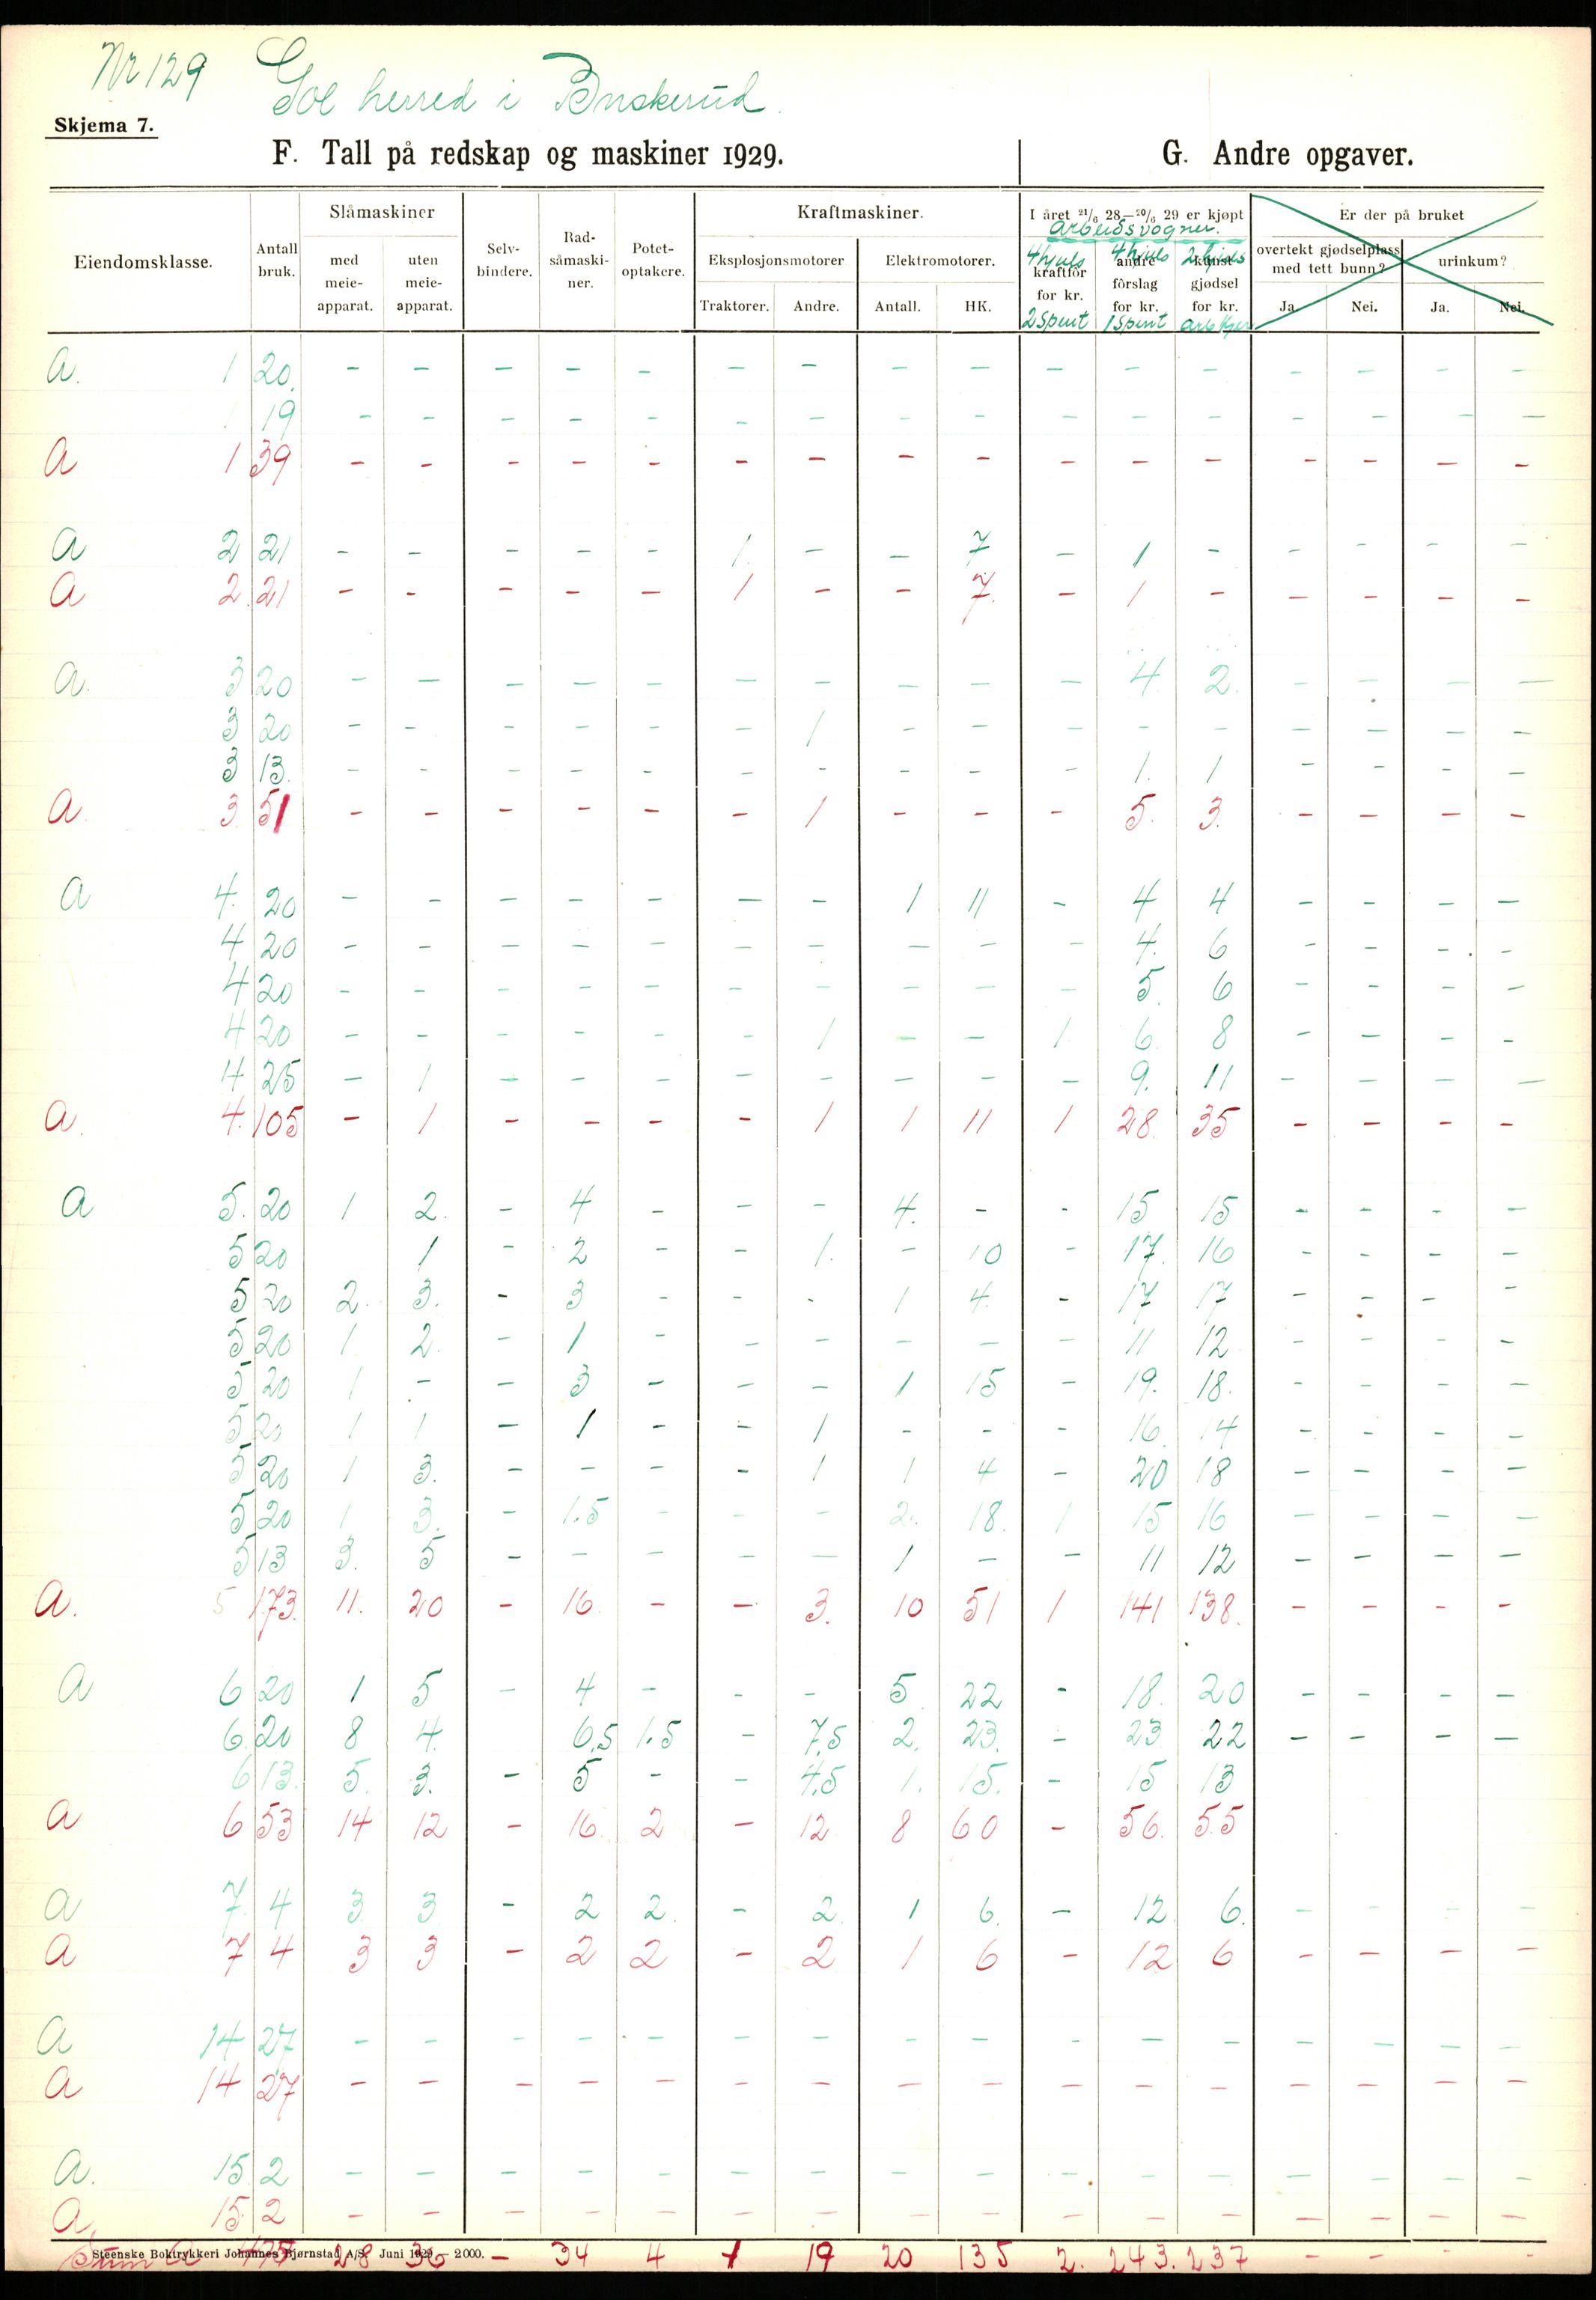 Nr 129 Gol herred i Buskerud.
Skjema 7.
F. Tall på redskap og maskiner 1929. G. Andre opgaver.
Eiendomsklasse. Antall bruk. Slåmaskiner Selv-bindere. Rad-såmaski-ner. Potet-optakere. Kraftmaskiner. I året 21/6 28—20/6 29 er kjøpt Er der på bruket
arbeidsvogner.
med meie-apparat. uten meie-apparat. Eksplosjonsmotorer Elektromotorer. 4 hjuls kraftfôr for kr. 4 hjuls andre fôrslag for kr. 2 hjuls kunst gjødsel for kr. overtekt gjødselplass med tett bunn? urinkum?
Traktorer. Andre. Antall. HK. 2 spent 1 spent Ja. Nei. Ja. Nei.
A. 1 20. – – – – – – – – – – – – – – – –
1 19 – – – – – – – – – – – – – – – –
A 1 39 – – – – – – – – – – – – – – – –
A 2 21 – – – – – 1 – – 7 – 1 – – – – –
A 2. 21 – – – – – 1 – – 7. – 1 – – – – –
A. 3 20 – – – – – – – – – – 4 2. – – – –
3 20 – – – – – – 1 – – – – – – – – –
3 13. – – – – – – – – – – 1. 1 – – – –
A 3. 51 – – – – – – 1 – – – 5. 3. – – – –
A 4. 20 – – – – – – – 1 11 – 4 4 – – – –
4 20 – – – – – – – – – – 4. 6 – – – –
4 20 – – – – – – – – – – 5. 6 – – – –
4 20 – – – – – – 1 – – 1. 6. 8 – – – –
4 25 – 1 – – – – – – – – 9. 11 – – – –
A. 4. 105 – 1 – – – – 1 1 11 1 28. 35 – – – –
A 5. 20 1 2. – 4 – – – 4. – – 15 15 – – – –
5 20 1 – 2 – – 1. – 10 – 17. 16 – – – –
5 20 2. 3. – 3 – – – 1 4. – 17 17 – – – –
5 20 1 2. – 1 – – – – – – 11 12 – – – –
5 20 1 – – 3 – – – 1 15 – 19. 18. – – – –
5 20 1 1 – 1 – – 1 – – – 16. 14 – – – –
5 20 1 3. – – – – 1 1 4 – 20 18 – – – –
5 20 1 3. – 1.5 – – – 2. 18. 1 15 16 – – – –
5 13 3. 5 – – – – – 1 – – 11 12 – – – –
A. 5 173. 11. 20 – 16. – – 3. 10 51 1 141 138. – – – –
A 6 20 1 5 – 4 – – – 5. 22 – 18. 20 – – – –
6. 20 8 4. 6,5 1.5 – 7,5 2. 23. – 23. 22 – – – –
6 13. 5. 3. – 5 – – 4,5 1. 15. – 15 13
A 6 53 14 12 – 16. 2 – 12 8 60 – 56. 55
A 7. 4 3. 3. – 2 2. – 2. 1 6. – 12. 6. – – – –
A 7 4 3 3 – 2 2 – 2 1 6 – 12 6 – – – –
A 14 27 – – – – – – – – – – – – – – – –
A 14 27 – – – – – – – – – – – – – – – –
A. 15 2 – – – – – – – – – – – – – – – –
A. 15. 2 – – – – – – – – – – – – – – – –
Steenske Boktrykkeri Johannes Bjørnstad A/S. Juni 1929 – 2000.
Sum A 475 28 36 – 34 4 1 19 20 135 2. 243. 237 – – – –